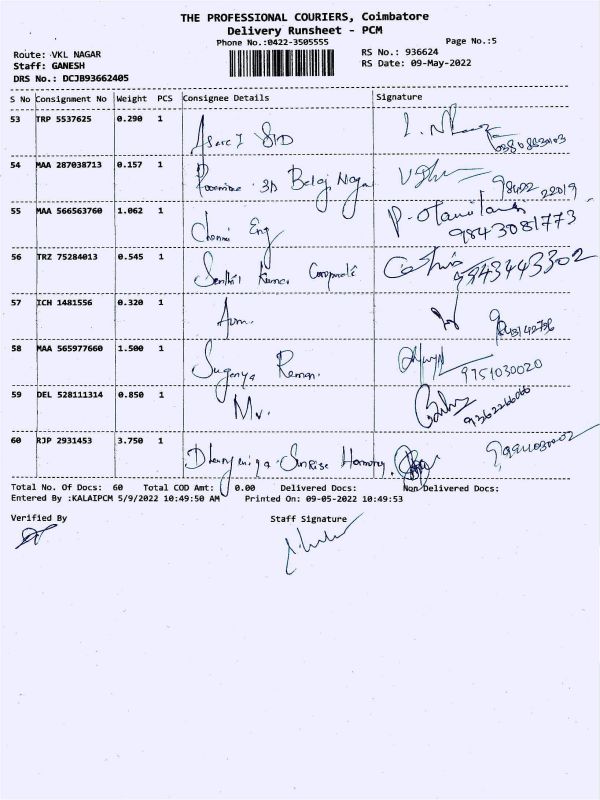 THE PROFESSIONAL COURIERS, Coimbatore
Delivery Runsheet - PCM
Phone No.:0422-3505555
Page No.:5
Route: VKL NAGAR
RS No.: 936624
Staff: GANESH
RS Date: 09-May-2022
DRS No.: DCJB93662405
S No Consignment No Weight PCS Consignee Details Signature
53 TRP 5537625 0.290 1
54 MAA 287038713 0.157 1 98422 22019
55 MAA 566563760 1.062 1 Chennai Eng 9843081773
56 TRZ 75284013 0.545 1 9943443302
57 ICH 1481556 0.320 1
58 MAA 565977660 1.500 1 Sugenya Raman. 9751030020
59 DEL 528111314 0.850 1 Mr. 9362266066
60 RJP 2931453 3.750 1 Sunrise
Total No. Of Docs: 60 Total COD Amt: 0.00 Delivered Docs: Non Delivered Docs:
Entered By :KALAIPCM 5/9/2022 10:49:50 AM Printed On: 09-05-2022 10:49:53
Verified By Staff Signature